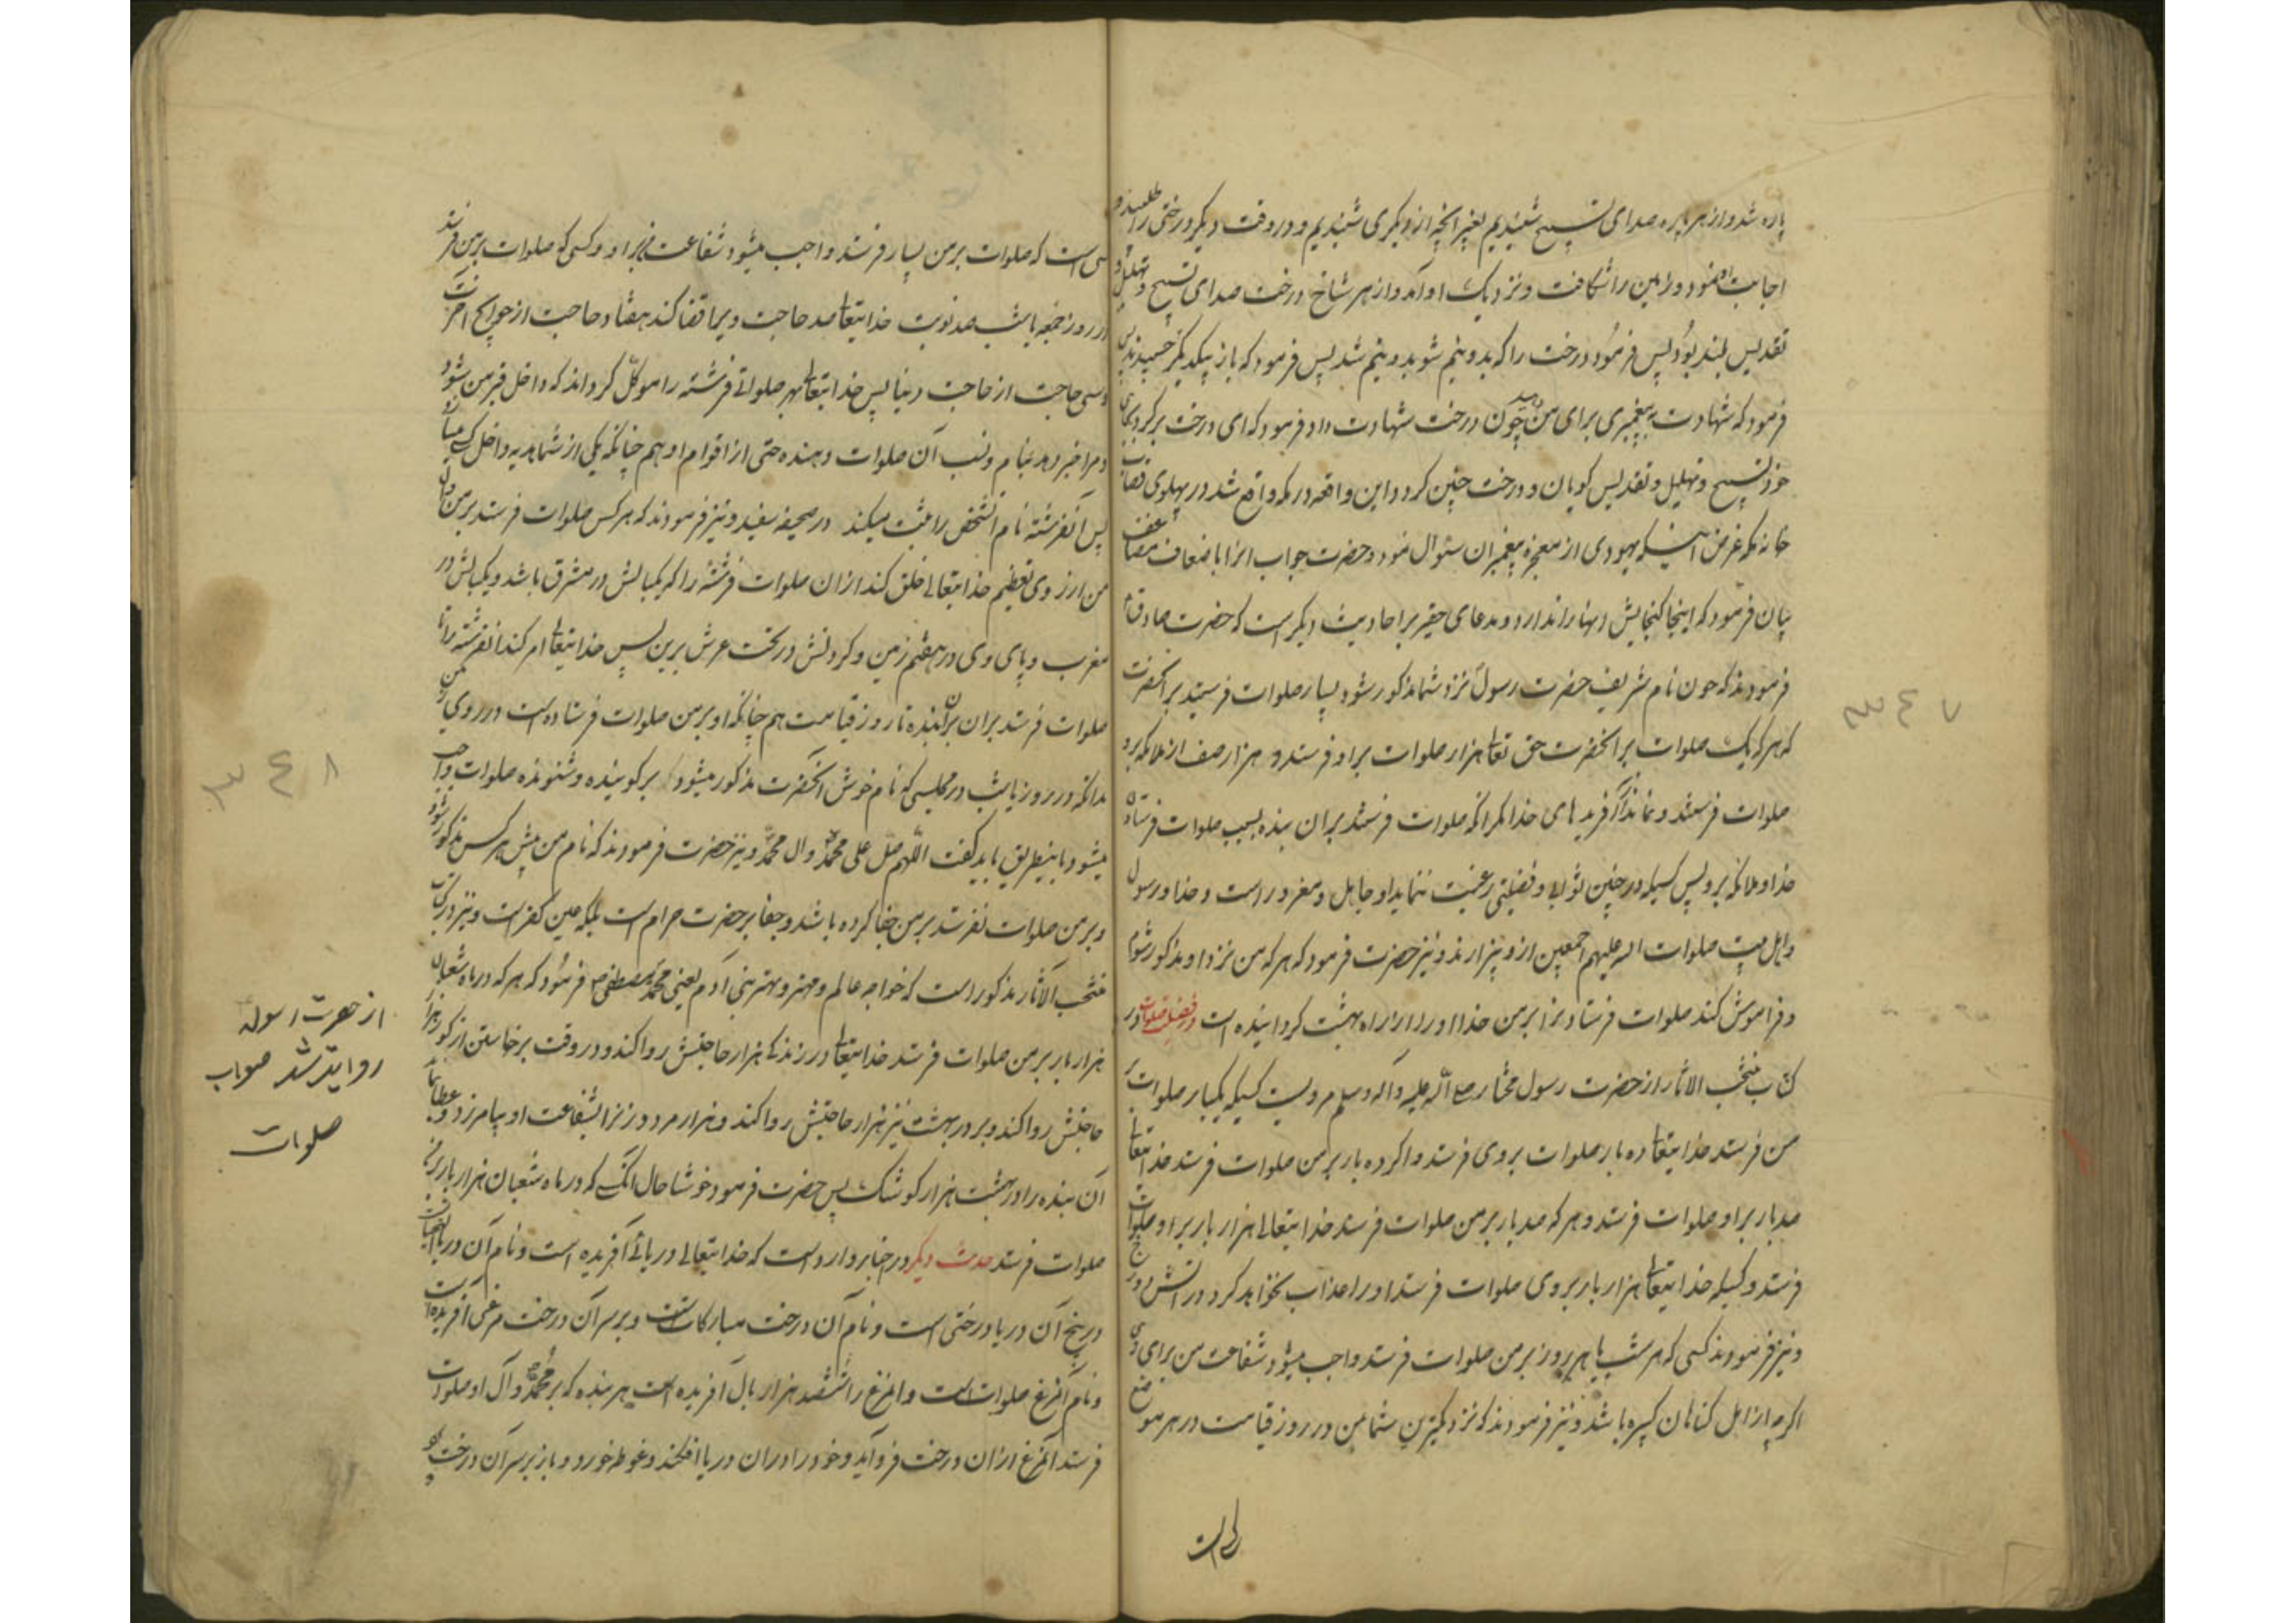 پاره شد و از هر پاره صدای تسبیح شنیدیم بغیر انچه از دیکری شنیدیم و در وقت دیکر درختی را طلبید و
اجابت نمود و زمین را شکافت و نزدیک او آمد و از هر شاخ درخت صدای تسبیح و تهلیل و
تقدیس بلند بود پس فرمود درخت را که بدو نیم شو بدو نیم شد پس فرمود که باز بیکدیکر چسبیدند پس
فرمود که شهادت به پیغمبری برای من بده چون درخت شهادت داد فرمود که ای درخت برکرد بجای
خود تسبیح و تهلیل و تقدیس کویان و درخت چنین کرد و این واقعه در مکه واقع شد در پهلوی
خانه مکه غرض اینکه یهودی از معجزه پیغمبران سئوال نمود و حضرت جواب انرا باضعاف مضاعف
بیان فرمود که اینجا کنجایش انها را ندارد و مدعای حقیر برا حادیث دیکر است که حضرت صادق
فرمودند که چون نام شریف حضرت رسول نزد شما مذکور شود بسیار صلوات فرستید بر انحضرت
که هر که یک صلوات بر انحضرت حق تعالی هزار صلوات بر او فرستد و هزار صف از ملائکه برو
صلوات فرستند و نماند از آفریدهای خدا مکر انکه صلوات فرستد بران بنده بسبب صلوات فرستادن
خدا و ملائکه برو پس کسیکه در چنین ثوابی و فضیلتی رغبت ننماید او جاهل و مغرور است و خدا و رسول
و اهل بیت صلوات الله علیهم اجمعین ازو بیزارند و نیز حضرت فرمود که هر که من نزد او مذکور شوم
و فراموش کند صلوات فرستادنرا بر من خدا او را از راه بهشت کردانیده است در فضیلت صلوات در
کتاب منتخب الاثار از حضرت رسول مختار صلی الله علیه و آله وسلم مرویست کسیکه یکبار صلوات بر
من فرستد خدایتعالی ده بار صلوات بروی فرستد و اکر ده بار بر من صلوات فرستد خدایتعالی
صد بار بر او صلوات فرستد و هر که صد بار بر من صلوات فرستد خدایتعالی هزار بار بر او صلوات
فرستد و کسیکه خدایتعالی هزار بار بروی صلوات فرستد او را عذاب نخواهد کرد در اتش دوزخ
و نیز فرمودند کسی که هر شب یا هر روز بر من صلوات فرستد واجب میشود شفاعت من برای وی
اکرچه از اهل کناهان کبیره باشد و نیز فرمودند که نزدیکترین شما بمن در روز قیامت در هر موضع
کسی است که صلوات بر من بسیار فرستد واجب میشود شفاعت من بر او و کسی که صلوات بر من فرستد
در روز جمعه یا شب صد نوبت خدایتعالی صد حاجت ویرا قضا کند هفتاد حاجت از حوایج اخرت
و سی حاجت از حاجت دنیا پس خدایتعالی بهر صلواتی فرشته را موکل کرداند که داخل قبر من شود
و مرا خبر دهد بنام و نسب آن صلوات دهنده حتی از اقوام او هم چنانکه یکی از شما هدیه داخل
پس آنفرشته نام آنشخص را ثبت میکند در صحیفه سفید و نیز فرمودند که هر کس صلوات فرستد بر من
من از روی تعظیم خدایتعالی خلق کند از ان صلوات فرشته را که یکبالش در مشرق باشد و یکبالش در
مغرب و پای وی در هفتم زمین و کردنش در تحت عرش برین پس خدایتعالی امر کند انفرشته را تا
صلوات فرستد بران بنده تا روز قیامت هم چنانکه او بر من صلوات فرستاده است در روی زمین
بدانکه در روز یا شب در مجلسی که نام خوش انحضرت مذکور میشود بر کوینده و شنونده صلوات واجب
میشود باینطریق باید کفت اللهم صل علی محمد وال محمد و نیز حضرت فرمودند که نام من پیش هر کس مذکور شود
و بر من صلوات نفرستد بر من جفا کرده باشد و جفا بر حضرت حرام است بلکه عین کفر است و نیز در کتاب
منتخب الآثار مذکور است که خواجه عالم و مهتر و بهتر بنی آدم یعنی محمد مصطفی ص فرمود که هر که در ماه شعبان
هزار بار بر من صلوات فرستد خدایتعالی در زندکی هزار حاجتش روا کند و در وقت برخاستن از کور هزار
حاجتش روا کند و بر در بهشت نیز هزار حاجتش روا کند و هزار مرد و زنرا بشفاعت او بیامرزد و عطا نماید
آن بنده را در بهشت هزار کوشک پس حضرت فرمود خوشا حال انکسی که در ماه شعبان هزار بار بر من
صلوات فرستد حدیث دیکر در اخبار وارد است که خدایتعالی دریائی آفریده است و نام آن دریا
در بیخ آن دریا درختی است و نام آن درخت مبارکات است و بر سر آن درخت مرغی افریده است
و نام آنمرغ صلوات است و انمرغ را ششصد هزار بال آفریده است هر بنده که بر محمد و آل او صلوات
فرستد آنمرغ از ان درخت فرو آید و خود را در ان دریا افکند و غوطه خورد و باز بر سر آن درخت
از حضرت رسول
روایت شد صواب
صلوات
٣٤٧
٣٤٨